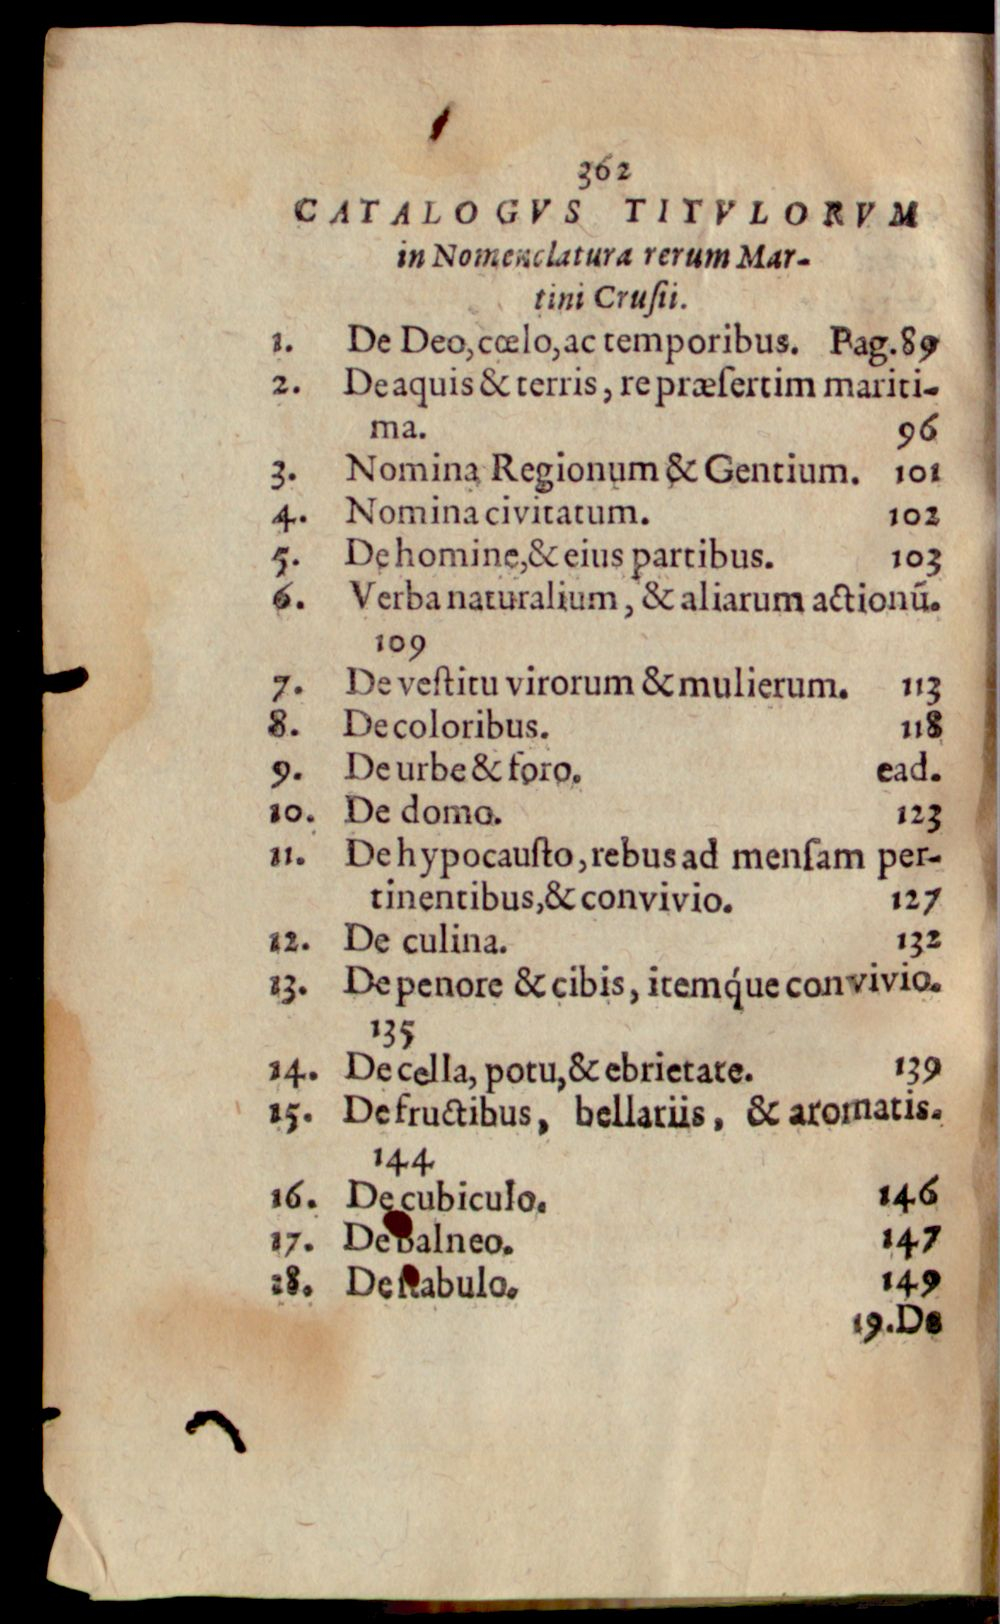 362
CATALOGVS TITVLORVM
in Nomenclatura rerum Mar-
tini Cruſii.
1. De Deo, cœlo, ac temporibus. Pag. 89
2. De aquis & terris, re præſertim mariti-
ma. 96
3. Nomina Regionum & Gentium. 101
4. Nomina civitatum. 102
5. De homine, & eius partibus. 103
6. Verba naturalium, & aliarum actionū.
109
7. De veſtitu virorum & mulierum. 113
8. De coloribus. 118
9. De urbe & foro. ead.
10. De domo. 123
11. De hypocauſto, rebus ad menſam per-
tinentibus, & convivio. 127
12. De culina. 132
13. De penore & cibis, itemq́ue convivio.
135
14. De cella, potu, & ebrietate. 139
15. De fructibus, bellariis, & aromatis.
144
16. De cubiculo. 146
17. De balneo. 147
18. De ſtabulo. 149
19. De